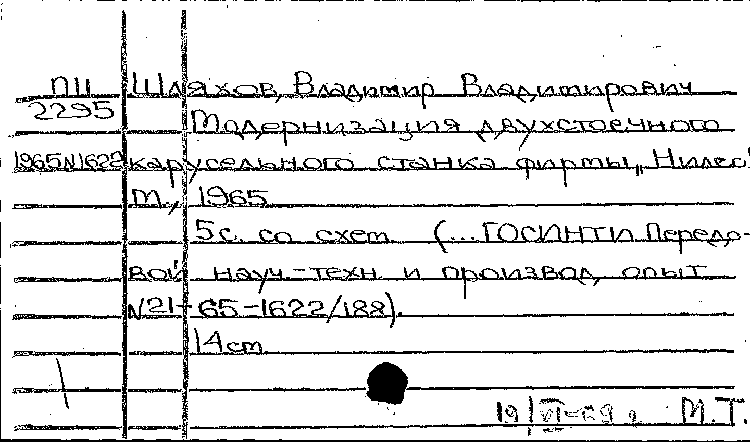 ПII Шляхов, Владимир Владимирович
2295 Модернизация двухстоечного
1965 N1622 карусельного станка фирмы „Нилес"
М., 1965
5с. со схем (...ГОСИНТИ Передо-
вой науч.-техн и производ, опыт
N21-65-1622/188).
14 cm
19/VI-69 г М.Т.